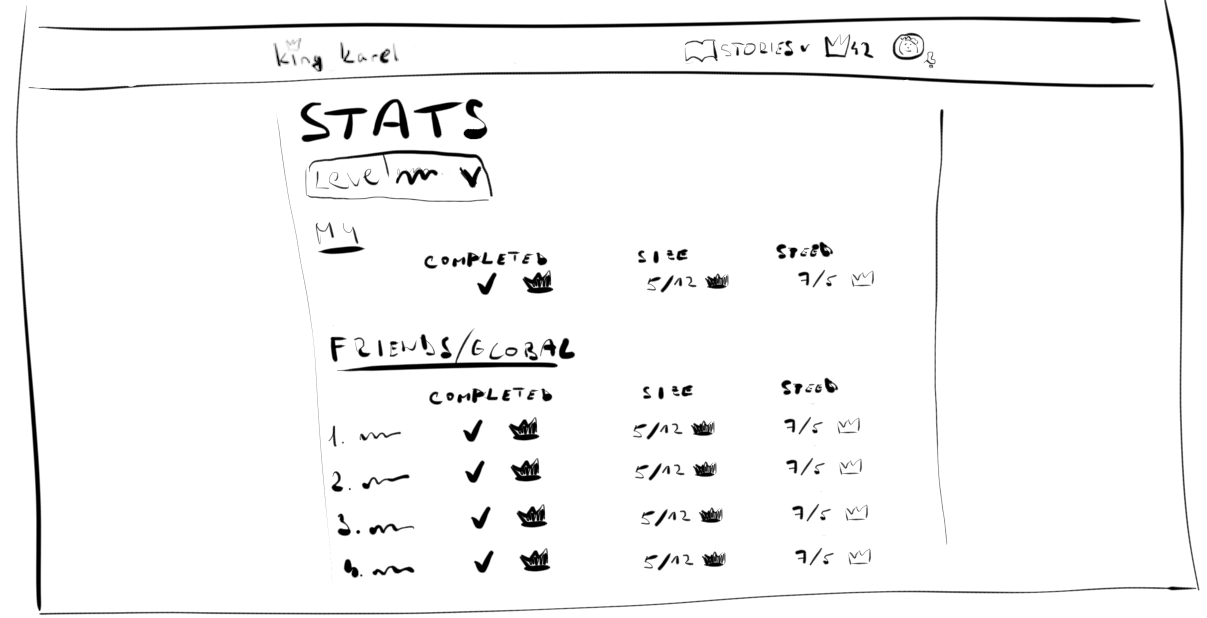 king karel STORIES 42
STATS
Level
MY
COMPLETED SIZE SPEED
5/12 7/5
FRIENDS/GLOBAL
COMPLETED SIZE SPEED
1. 5/12 7/5
2. 5/12 7/5
3. 5/12 7/5
4. 5/12 7/5